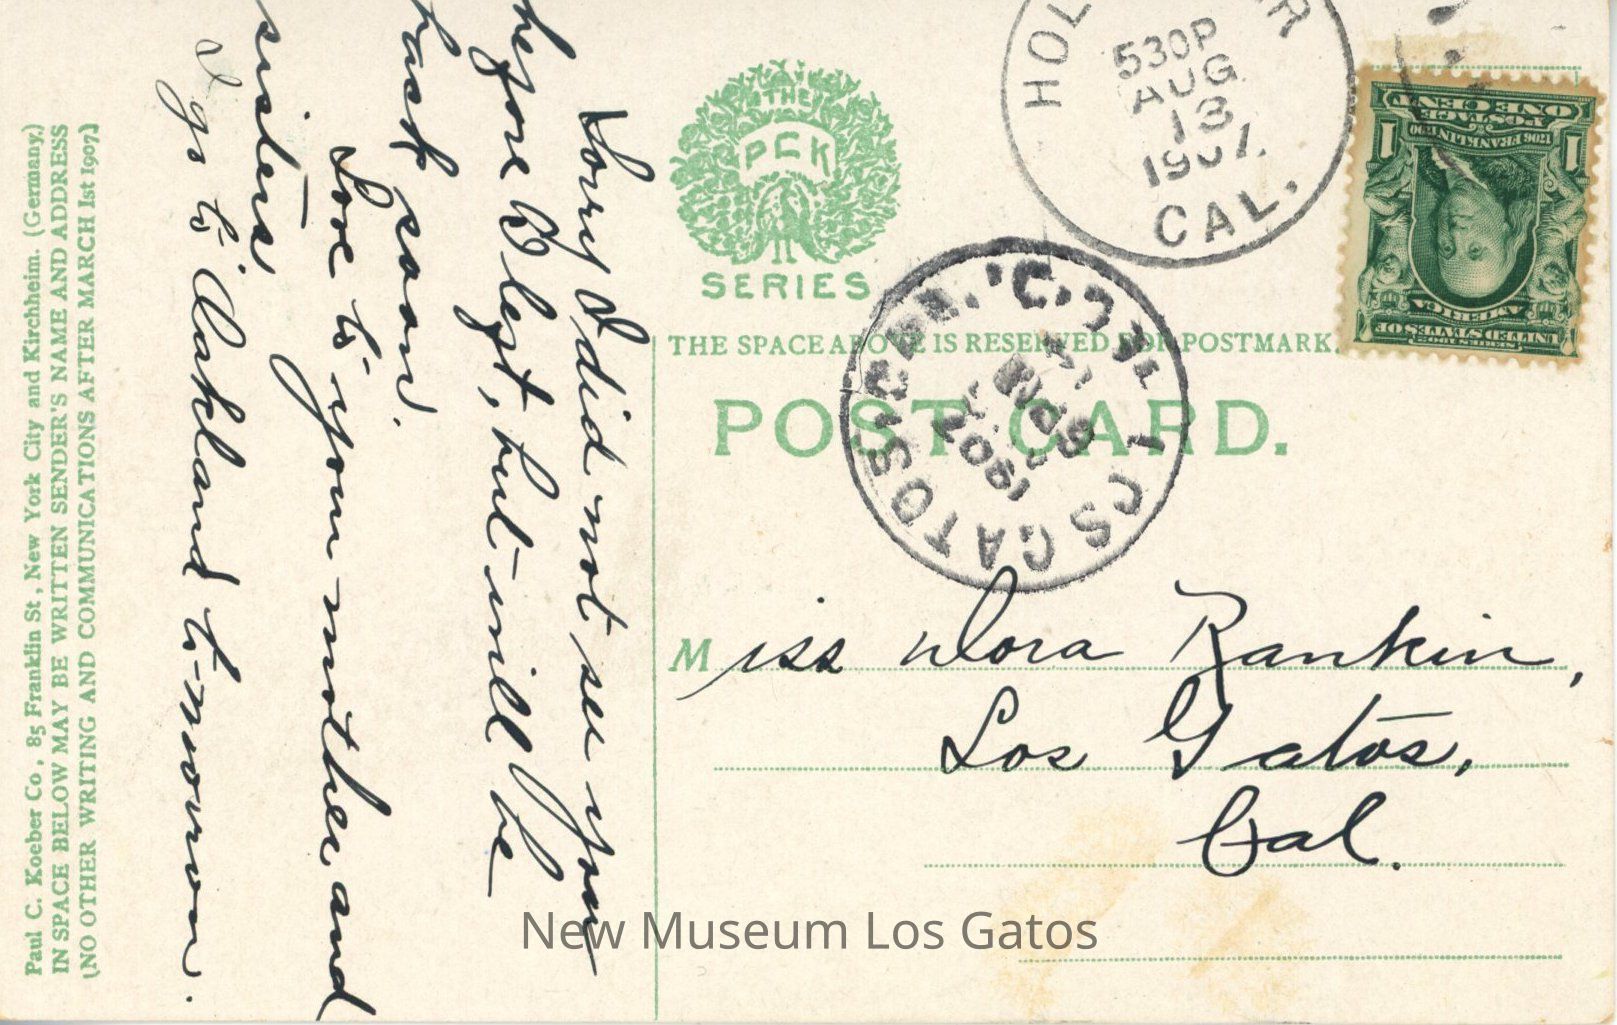 Paul C. Koeber Co., 85 Franklin St., New York City and Kirchheim. (Germany.)
IN SPACE BELOW MAY BE WRITTEN SENDER'S NAME AND ADDRESS
(NO OTHER WRITING AND COMMUNICATIONS AFTER MARCH 1st 1907.)
Sorry I did not see you
before I left, but will be
back soon.
Love to your mother and
sisters
I go to Oakland to-morrow.
THE
PCK
SERIES
530P
AUG
13
1907
CAL.
ONE CENT
POSTAGE
1706 FRANKLIN 1790
1 1
AMERICA
UNITED STATES OF
SERIES 1902
THE SPACE ABOVE IS RESERVED FOR POSTMARK.
POST CARD.
GATOS, CAL.
REC'D.
14
6 PM
1907
Miss Dora Rankin,
Los Gatos,
Cal.
New Museum Los Gatos